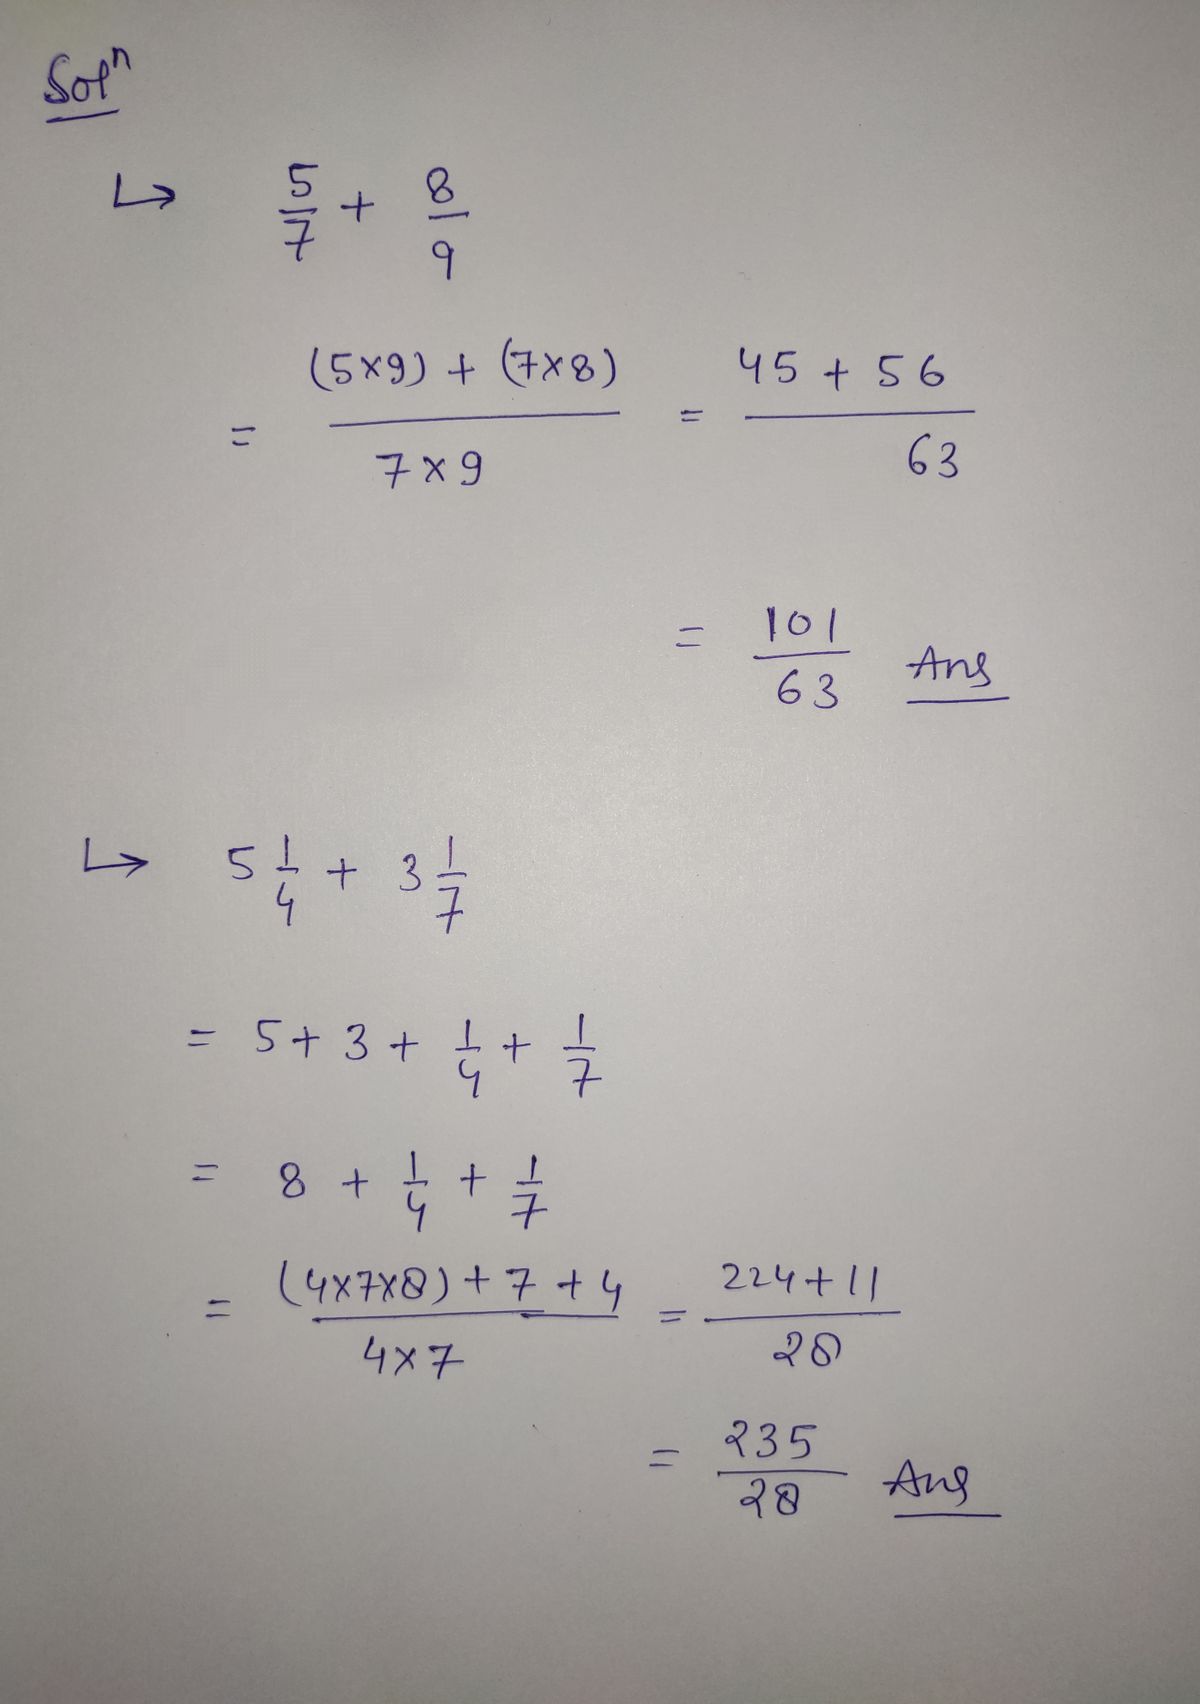 Solⁿ
↳ 5/7 + 8/9
= ((5×9) + (7×8))/(7×9) = (45 + 56)/63
= 101/63 Ans
↳ 5 1/4 + 3 1/7
= 5 + 3 + 1/4 + 1/7
= 8 + 1/4 + 1/7
= ((4×7×8) + 7 + 4)/(4×7) = (224 + 11)/28
= 235/28 Ans